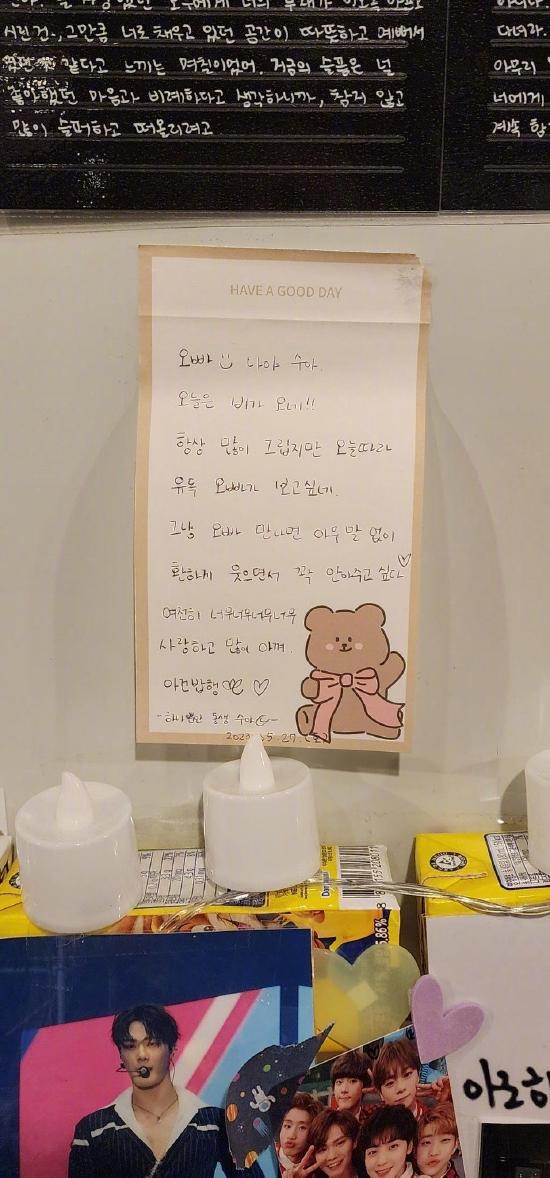 시린 건, 그만큼 너로 채우고 있던 공간이 따뜻하고 예뻐서
같다고 느끼는 며칠이었어. 지금의 슬픔은 널
좋아했던 마음과 비례하다고 생각하니까, 참지 않고
많이 슬퍼하고 떠올리려고
다녀라.
아무리
너에게
계속
HAVE A GOOD DAY
오빠 나야 수아.
오늘은 비가 오네!!
항상 많이 그립지만 오늘따라
유독 오빠가 보고싶네.
그냥 오빠 만나면 아무 말 없이
환하게 웃으면서 꽉 안아주고 싶다
여전히 너무너무너무너무
사랑하고 많이 아껴.
아건밥행
-하나뿐인 동생 수아-
2023.05.27.(토)